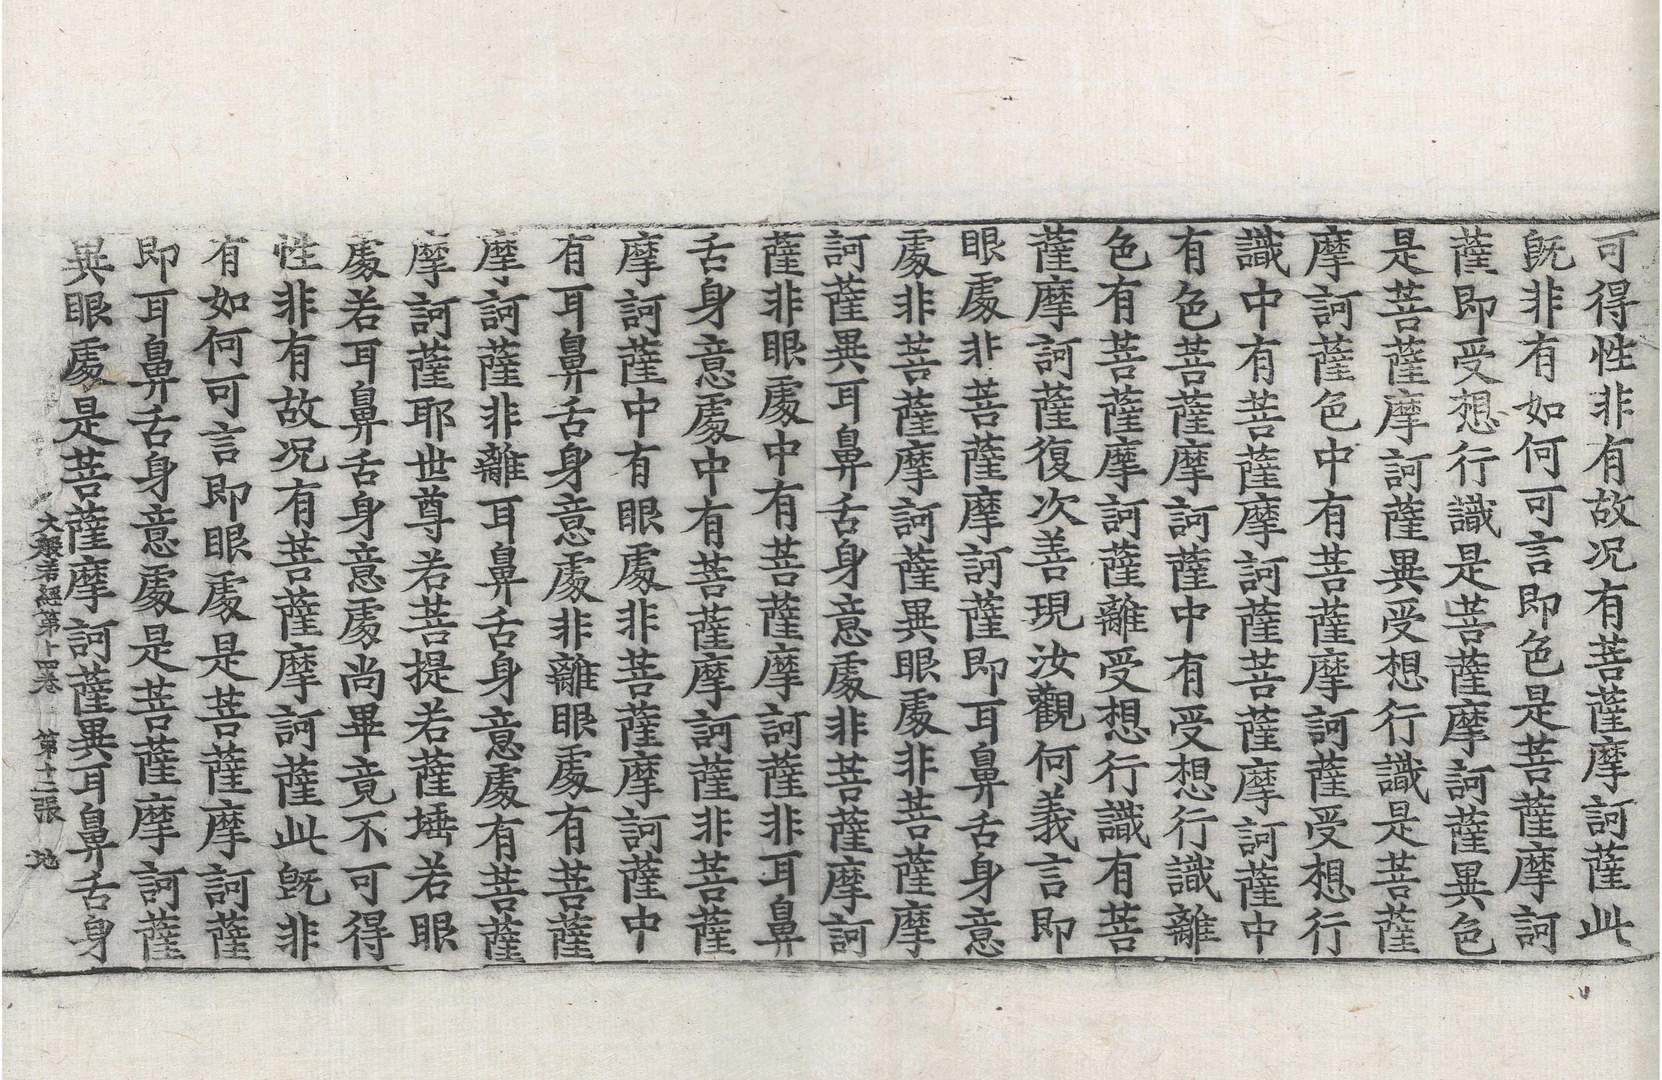 可得性非有故况有菩薩摩訶薩此
旣非有如何可言即色是菩薩摩訶
薩即受想行識是菩薩摩訶薩異色
是菩薩摩訶薩異受想行識是菩薩
摩訶薩色中有菩薩摩訶薩受想行
識中有菩薩摩訶薩菩薩摩訶薩中
有色菩薩摩訶薩中有受想行識離
色有菩薩摩訶薩離受想行識有菩
薩摩訶薩復次善現汝觀何義言即
眼處非菩薩摩訶薩即耳鼻舌身意
處非菩薩摩訶薩異眼處非菩薩摩
訶薩異耳鼻舌身意處非菩薩摩訶
薩非眼處中有菩薩摩訶薩非耳鼻
舌身意處中有菩薩摩訶薩非菩薩
摩訶薩中有眼處非菩薩摩訶薩中
有耳鼻舌身意處非離眼處有菩薩
摩訶薩非離耳鼻舌身意處有菩薩
摩訶薩耶世尊若菩提若薩埵若眼
處若耳鼻舌身意處尚畢竟不可得
性非有故况有菩薩摩訶薩此旣非
有如何可言即眼處是菩薩摩訶薩
即耳鼻舌身意處是菩薩摩訶薩
異眼處是菩薩摩訶薩異耳鼻舌身
大般若經第十四卷 第十二張 地